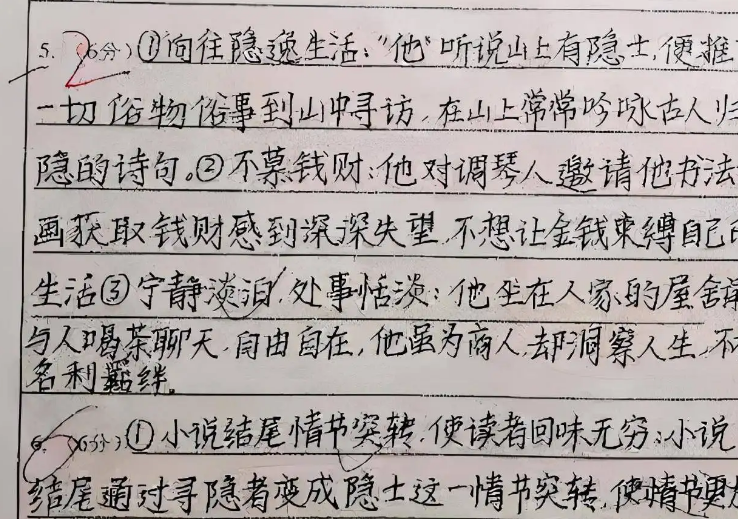 5. (6分)①向往隐逸生活:“他”听说山上有隐士,便推
一切俗物俗事到山中寻访,在山上常常吟咏古人归
隐的诗句。②不慕钱财:他对调琴人邀请他书法
画获取钱财感到深深失望,不想让金钱束缚自己
生活③宁静淡泊,处事恬淡:他坐在人家的屋舍
与人喝茶聊天,自由自在,他虽为商人,却洞察人生,不
名利羁绊。
6. (6分)①小说结尾情节突转,使读者回味无穷:小说
结尾通过寻隐者变成隐士这一情节突转,使情节更